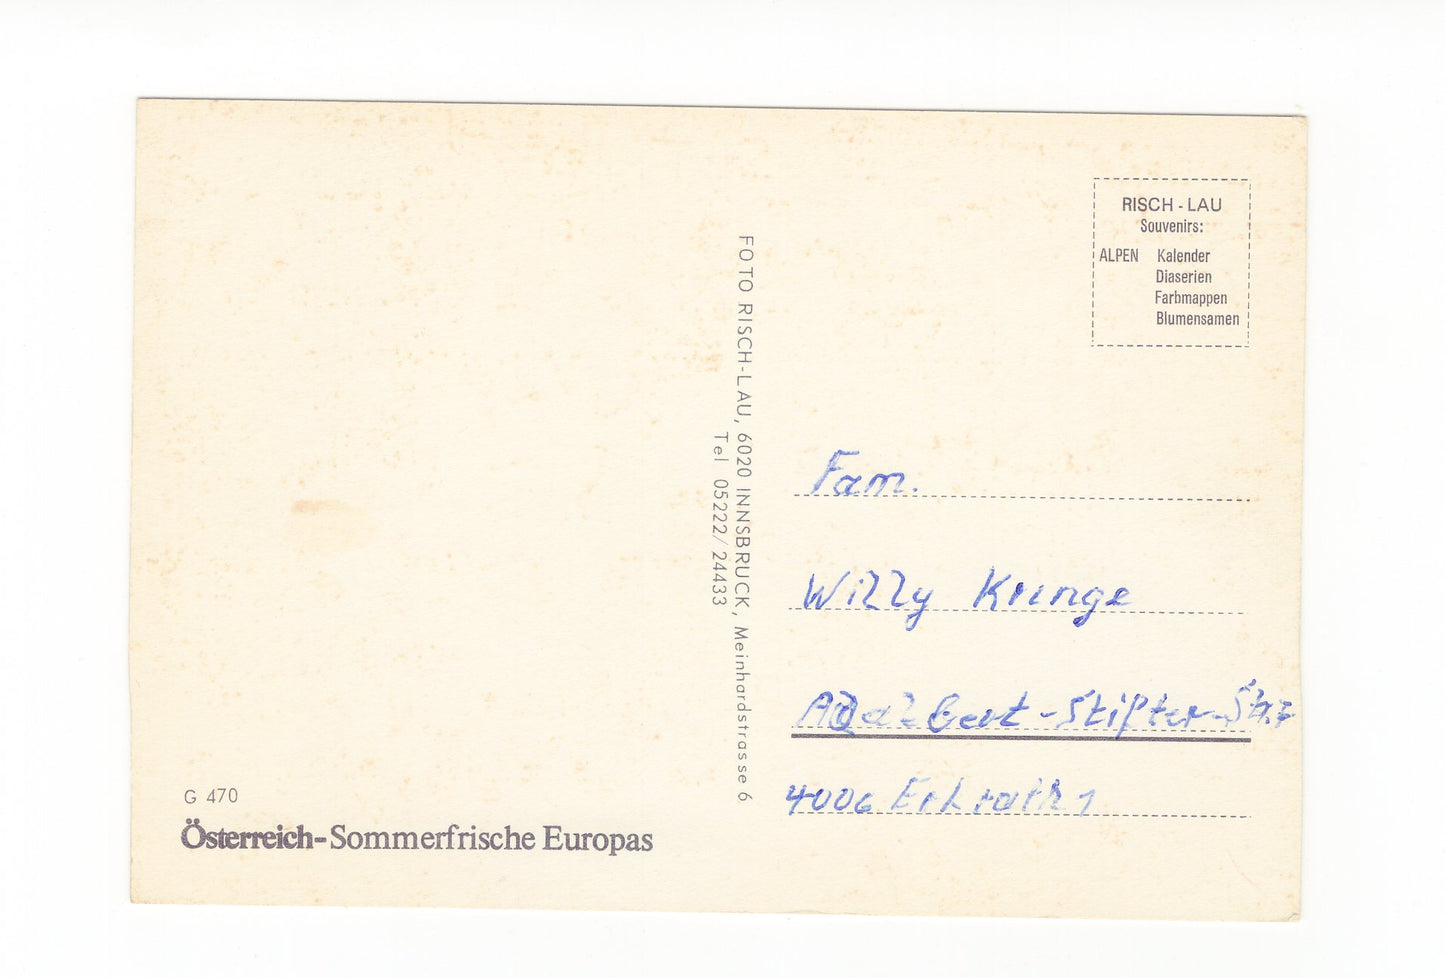 RISCH - LAU
Souvenirs:
ALPEN Kalender
Diaserien
Farbmappen
Blumensamen
FOTO RISCH-LAU, 6020 INNSBRUCK, Meinhardstrasse 6
Tel 05222/24433
Fam.
Willy Krunge
Adalbert-Stifter-Str.
4006 Erkrath 1
G 470
Österreich-Sommerfrische Europas